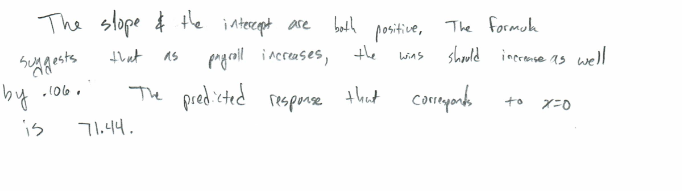 The slope & the intercept are both positive. The formula
suggests that as payroll increases, the wins should increase as well
by .106. The predicted response that corresponds to x=0
is 71.44.